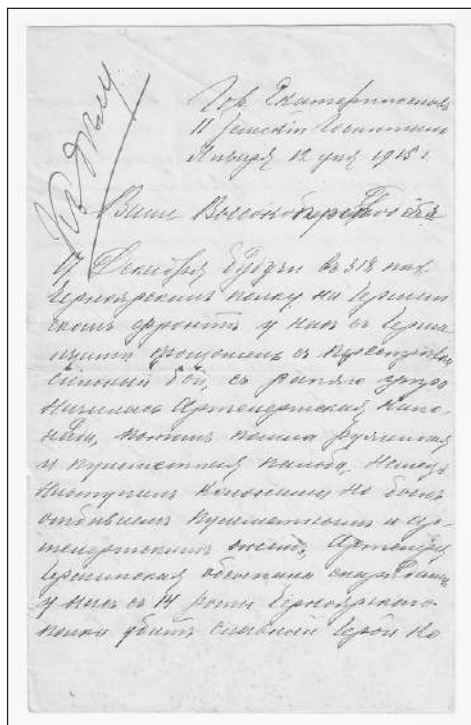 Къ делу
Гор. Екатеринославъ
11 Земскiй Госпиталь
Января 12 дня 1915 г.
Ваше Высокоблагородiе
17 Декабря будучи въ 318 пех
Черноярскомъ полку на Герман
скомъ фронтѣ у насъ съ Герма
нцами произошелъ съ
сильный бой, съ ранняго утра
началась Артилерiйская кано-
нада, потомъ пошла Ружейная
и пулеметная пальба, Немцы
наступали колоннами но были
отбиваемы пулеметнымъ и ар-
тилерiйскимъ огнемъ, Артилерiя
Германская обсыпала снарядами
у насъ съ 14 роты Черноярскаго
полка убитъ славный Герой Ко